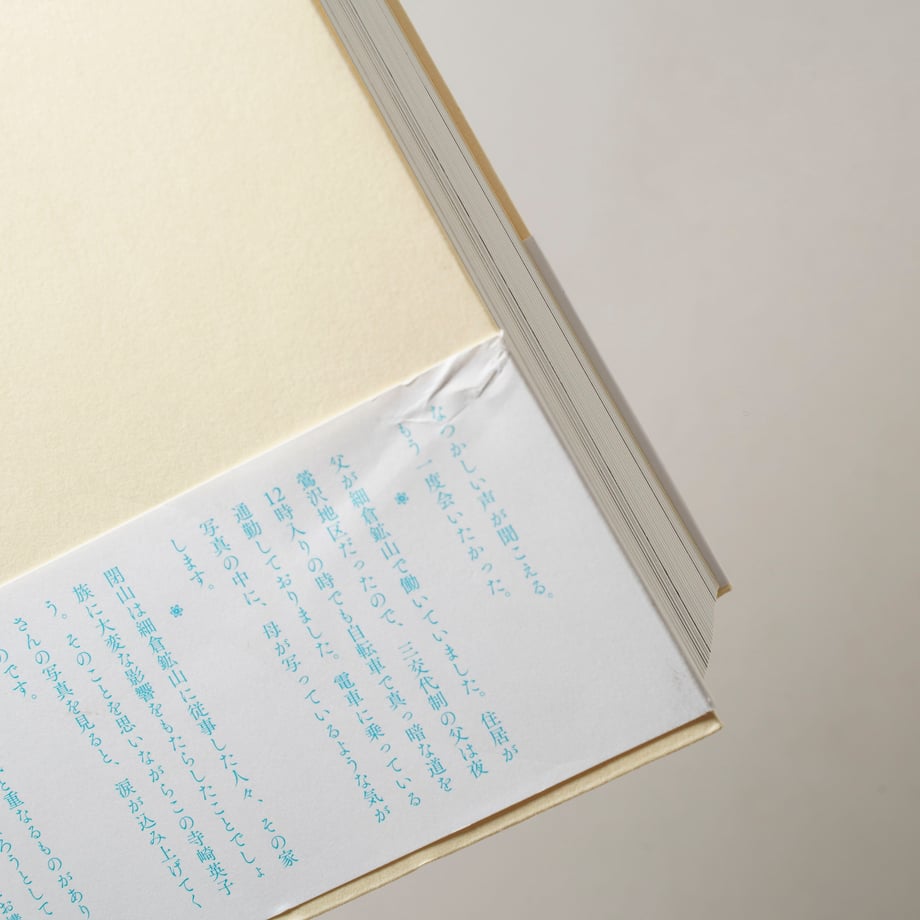 なつかしい声が聞こえる。
もう一度会いたかった。
父が細倉鉱山で働いていました。住居が
鶯沢地区だったので、三交代制の父は夜
12時入りの時でも自転車で真っ暗な道を
通勤しておりました。電車に乗っている
写真の中に、母が写っているような気が
します。
閉山は細倉鉱山に従事した人々、その家
族に大変な影響をもたらしたことでしょ
う。そのことを思いながらこの寺崎英子
さんの写真を見ると、涙が込み上げてく
のです。
と重なるものがあり
ろうとして